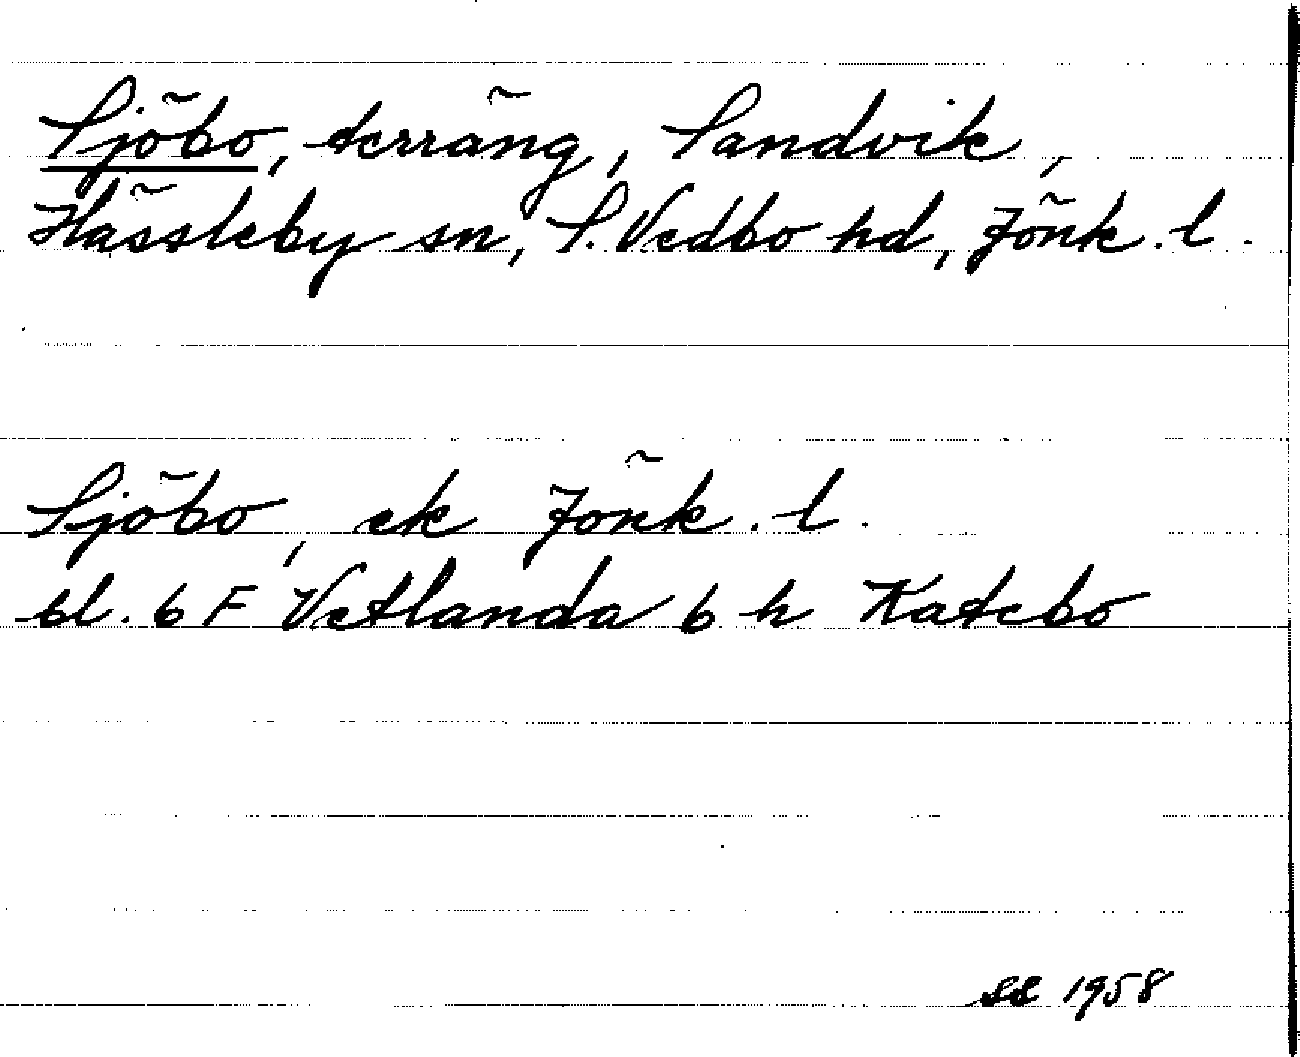 Sjöbo, terräng, Sandvik,
Hässleby sn, S. Vedbo hd, Jönk. l.
Sjöbo, ek Jönk. l.
bl. 6 F Vetlanda 6 h Katebo
SL 1958